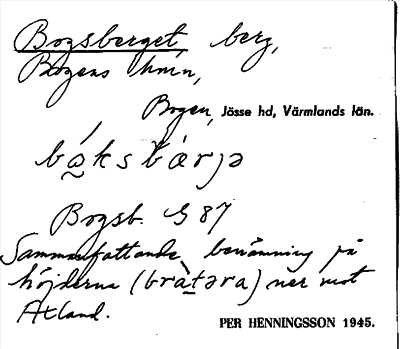 Bogsberget, berg,
Bogens hmn,
Bogen, Jösse hd, Värmlands län.
bå̀ksbǽrjə
Bogsb. G 87
Sammanfattande benämning på
höjderna (bràtəra) ner mot
Axland.
PER HENNINGSSON 1945.